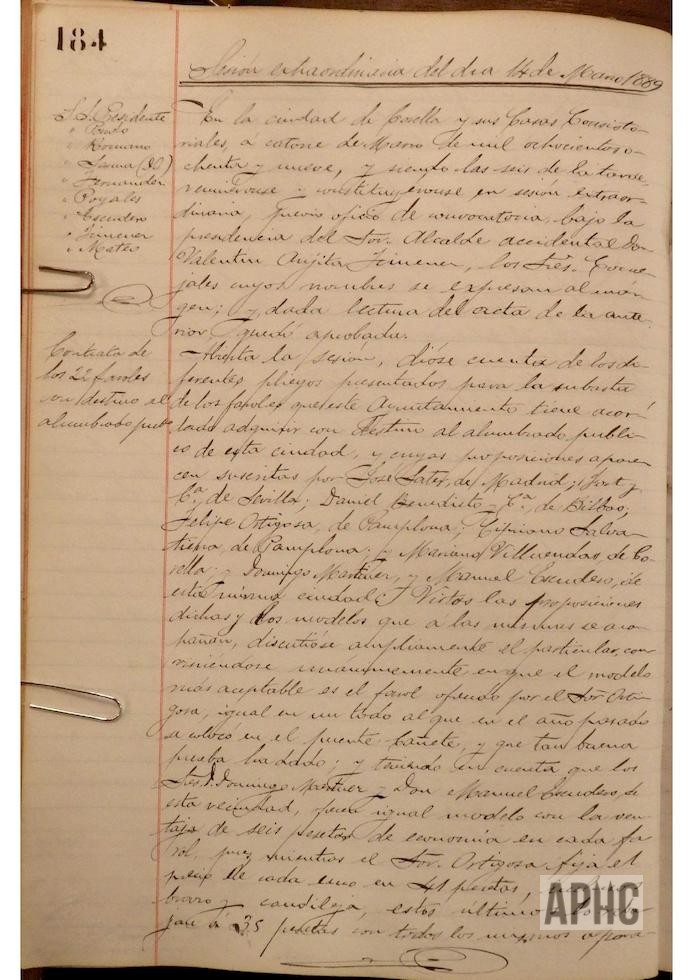 184
Sesión extraordinaria del dia 14 de Marzo 1889
S.S. Presidente
" Romano
" Fernandez
" Poyales
" Escudero
" Jimenez
" Mateo
En la ciudad de Corella y sus Casas Consisto-
riales, á catorce de Marzo de mil ochocientos o-
chenta y nueve, y siendo las seis de la tarde,
reuniéronse y constituyéronse en sesión extraor-
dinaria, previo oficio de convocatoria, bajo la
presidencia del Sor. Alcalde accidental Don
Valentin Jimenez, los Sres. Conce-
jales cuyos nombres se expresan al már-
gen; y dada lectura del acta de la ante-
rior quedó aprobada.
Contrata de
los 22 faroles
con destino al
alumbrado pubo
Abierta la sesión, dióse cuenta de los di-
ferentes pliegos presentados para la subasta
de los faroles que este Ayuntamiento tiene acor-
dado adquirir con destino al alumbrado publi-
co de esta ciudad, y cuyas proposiciones apare-
cen suscritas por José de Madrid; y
Cª. de Sevilla; Daniel Benedicto y Cª. de Bilbao;
Felipe Ortigosa, de Pamplona; Cipriano Salva-
tierra, de Pamplona; y Mariano Villuendas, de Co-
rella; y Domingo Martinez, y Manuel Escudero, de
esta misma ciudad. Vistos las proposiciones
dichas y los modelos que a las mismas se acom-
pañan, discutióse ampliamente el particular, con-
viniéndose unánimemente en que el modelo
más aceptable es el farol ofrecido por el Sor Orti-
gosa, igual en un todo al que en el año pasado
se colocó en el puente Cañete, y que tan buena
prueba ha dado; y teniendo en cuenta que los
Sres. D. Domingo Martinez y Don Manuel Escudero, de
esta vecindad, igual modelo con la ven-
taja de seis pesetas de economía en cada fa-
rol, pues mientras el Sor. Ortigosa fija el
precio de cada uno en 41 pesetas,
brazo y candileja, estos últimos
jan á 35 pesetas con todos los mismos
APHC